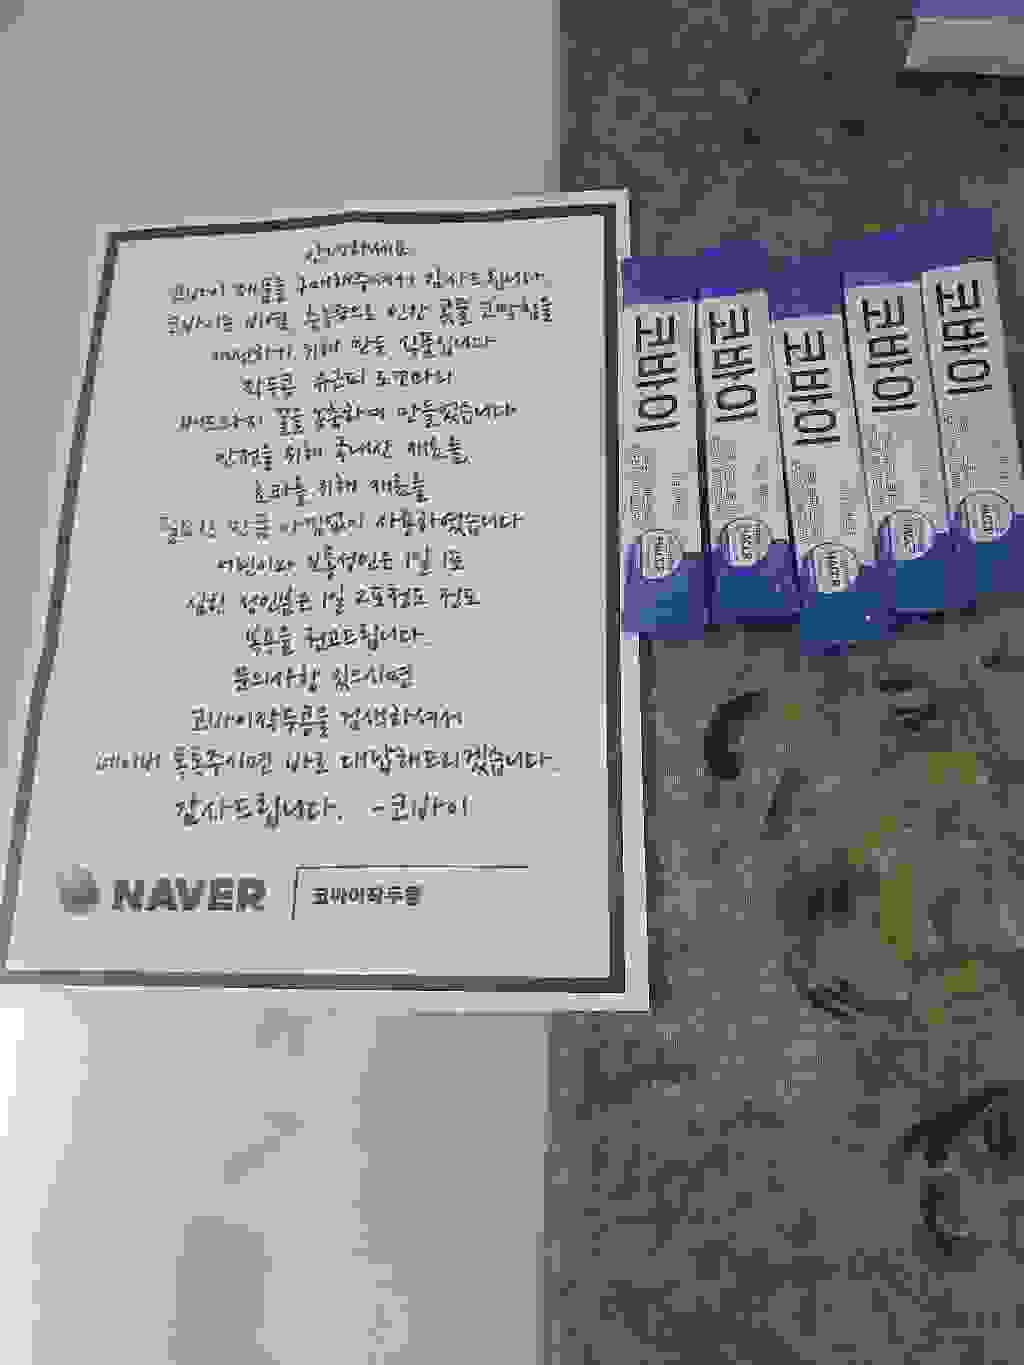 안녕하세요
코바이 제품을 구매해주셔서 감사드립니다.
코바이는 비염, 축농증으로 인한 콧물 코막힘을
개선하기 위해 만든 식품입니다
작두콩 유근피 도꼬마리
배도라지 꿀을 농축하여 만들었습니다
안전을 위해 국내산 재료를,
효과를 위해 재료를
필요한 만큼 아낌없이 사용하였습니다
어린이와 보통성인은 1일 1포
심한 성인분은 1일 2포정도
복용을 권고드립니다.
문의사항 있으시면
코바이작두콩을 검색하셔서
네이버 톡톡주시면 바로 대답해드리겠습니다.
감사드립니다. -코바이
NAVER
코바이작두콩
코바이
HACCP
코바이
HACCP
코바이
HACCP
코바이
HACCP
코바이
HACCP